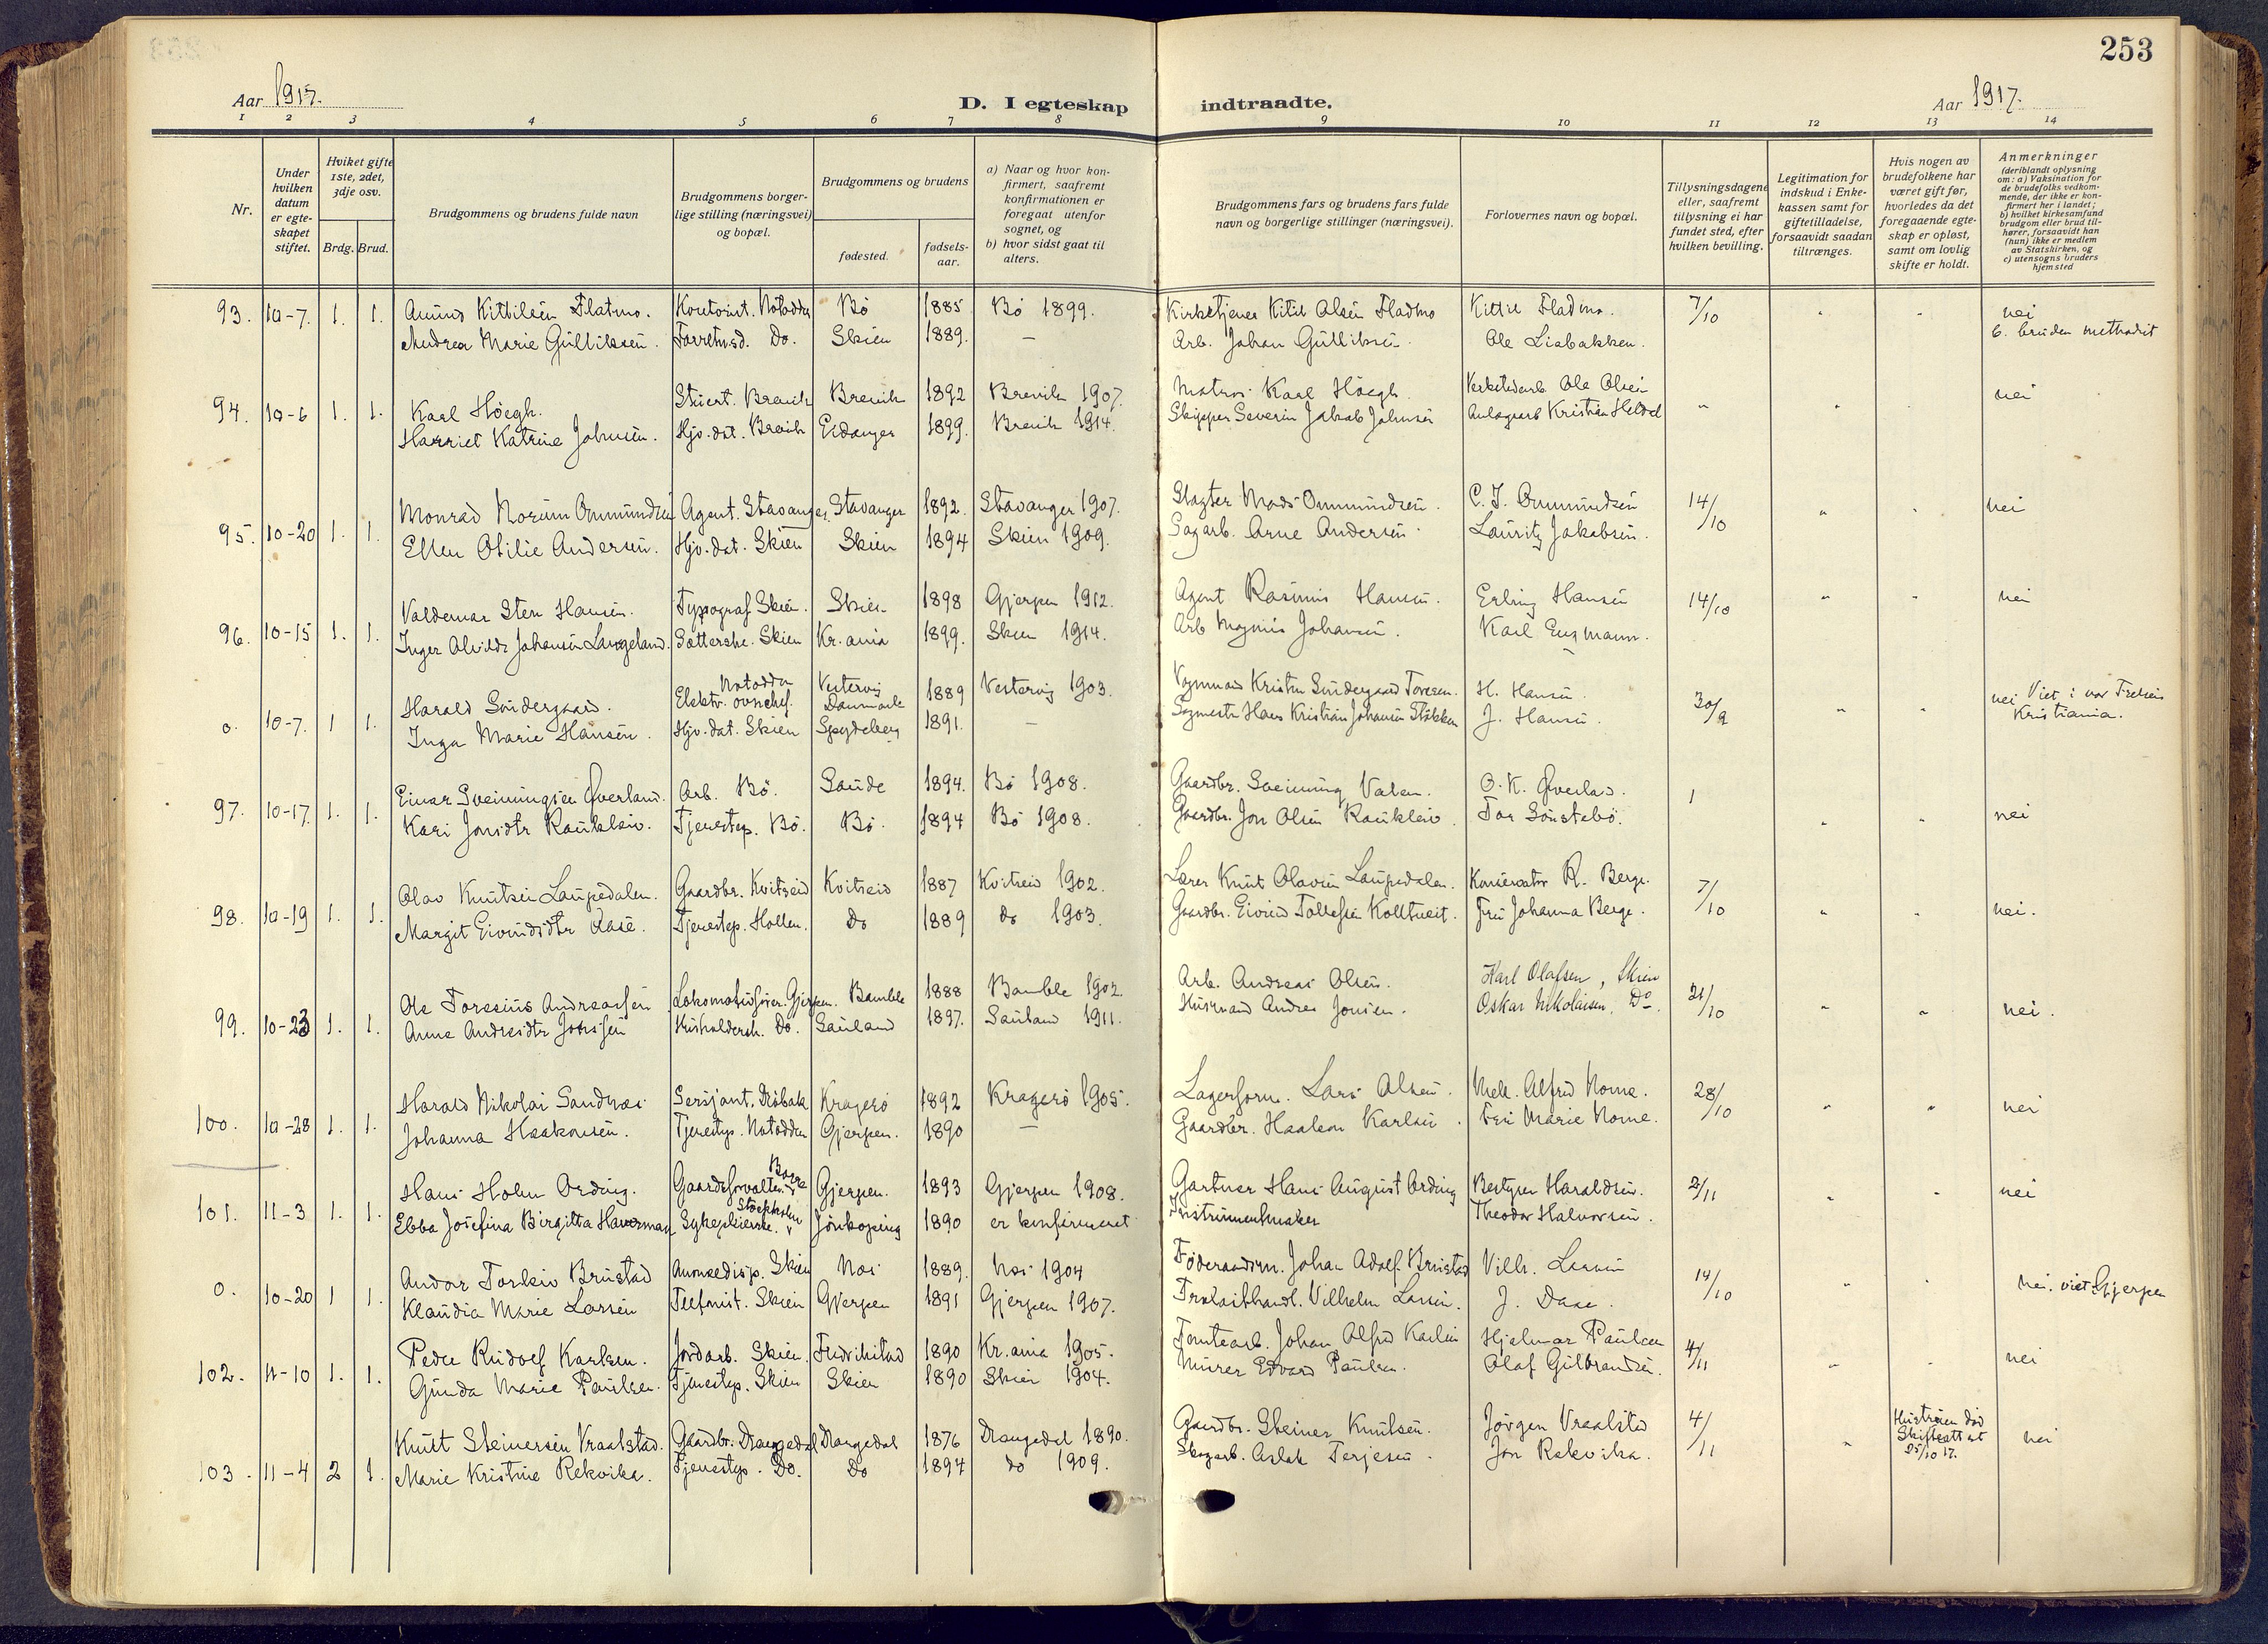 253
Aar 1917.
D. I egteskap indtraadte.
Aar 1917.
1 2 3 4 5 6 7 8 9 10 11 12 13 14
Nr.
Under hvilken datum er egte-skapet stiftet.
Hviket gifte 1ste, 2det, 3dje osv.
Brdg. Brud.
Brudgommens og brudens fulde navn
Brudgommens borger-lige stilling (næringsvei) og bopæl.
Brudgommens og brudens
fødested.
fødsels-aar.
a) Naar og hvor kon-firmert, saafremt konfirmationen er foregaat utenfor sognet, og
b) hvor sidst gaat til alters.
Brudgommens fars og brudens fars fulde navn og borgerlige stillinger (næringsvei).
Forlovernes navn og bopæl.
Tillysningsdagene eller, saafremt tillysning ei har fundet sted, efter hvilken bevilling.
Legitimation for indskud i Enke-kassen samt for giftetilladelse, forsaavidt saadan tiltrænges.
Hvis nogen av brudefolkene har været gift før, hvorledes da det foregaaende egte-skap er opløst, samt om lovlig skifte er holdt.
Anmerkninger (deriblandt oplysning om: a) Vaksination for de brudefolks vedkom-mende, der ikke er kon-firmert her i landet; b) hvilket kirkesamfund brudgom eller brud til-hører, forsaavidt han (hun) ikke er medlem av Statskirken, og c) utensogns bruders hjemsted
93. 10-7. 1. 1. Amund Kittilsen Flatmo. Kontorist. Notodden Bö 1885 Bö 1899. Kirketjener Kitil Olsen Fladmo Kittil Fladmo. 7/10 " " nei
Andrea Marie Gulliksen. Forretnsd. Do. Skien 1889. — Arb. Johan Gulliksen. Ole Liabakken. b. bruden methodist
94. 10-6 1. 1. Karl Höegh. Stuert. Brevik Brevik 1892 Brevik 1907. Matros Karl Höegh. Verkstedarb. Ole Olsen " " " nei
Harriet Katrine Johnsen. Hjv. dat. Brevik Eidanger 1899. Brevik 1914. Skipper Severin Jakob Johnsen Anlægsarb Kristian Heldal
95. 10-20 1. 1. Monrad Norum Ommundsen Agent. Stavanger. Stavanger 1892. Stavanger 1907. Slagter Mads Ommundsen. C. J. Ommundsen 14/10 " " nei
Ellen Otilie Andersen. Hjv. dat. Skien Skien 1894 Skien 1909. Sagarb. Arne Andersen. Lauritz Jakobsen.
96. 10-15 1. 1. Valdemar Sten Hansen. Typograf Skien. Skien 1898 Gjerpen 1912. Agent Rasmus Hansen. Erling Hansen 14/10 " " nei
Inger Alvilde Johansen Langeland. Sætterske. Skien Kr.ania 1899. Skien 1914. Arb Magnus Johansen. Karl Engmann.
0. 10-7. 1 1. Harald Søndergaard. Elektr. ovnchef. Notodden Vestervig Danmark 1889 Vestervig 1903. Vognmand Kristen Söndergaard Toresen. H. Hansen. 30/9 " " nei Viet i vor Frelsers Kristiania.
Inga Marie Hansen. Hjv. dat. Skien Spydeberg 1891. — Sagmester Hans Kristian Johansen Stokken J. Hansen.
97. 10-17. 1. 1. Einar Sveinungsen Øverland. Arb. Bö. Saude 1894. Bö 1908. Gaardbr. Sveinung Valen. O. K. Øverland. 1 " " nei
Kari Jonsdtr Raukleiv. Tjenestep. Bö. Bö. 1894 Bö 1908. Gaardbr. Jon Olsen Raukleiv. Tor Sönstebö.
98. 10-19 1. 1. Olav Knutsen Laupedalen. Gaardbr. Kvitseid Kvitseid 1887 Kvitseid 1902. Lærer Knut Olavsen Laupedalen. Konservator R. Berge. 7/10 " " nei.
Margit Eivindsdtr Aase. Tjenestep. Hollen. Do 1889 do 1903. Gaardbr. Eivind Tollefsen Kolltveit. Fru Johanna Berge.
99. 10-23 1. 1. Ole Toresius Andreassen Lokomotivfører. Gjerpen. Bamble 1888 Bamble 1902. Arb. Andreas Olsen. Karl Olafsen, Skien 21/10 " " nei.
Anne Andresdtr Jonssen Husholdersk. Do. Sauland 1897. Sauland 1911. Husmand Andres Jonsen. Oskar Nikolaisen, Do
100. 10-28 1. 1. Harald Nikolai Sandnæs Sersjant. Dröbak Kragerö 1892 Kragerö 1905. Lagerform. Lars Olsen. Mek. Alfred Nome. 28/10 " " nei
Johanna Haakonsen. Tjenestep. Notodden Gjerpen. 1890 — Gaardbr. Haakon Karlsen. Fru Marie Nome.
101. 11-3 1. 1. Hans Holm Ording. Gaardsforvalter. Borge Gjerpen. 1893 Gjerpen 1908. Gartner Hans August Ording Bestyrer Haraldsen. 2/11 " " nei
Ebba Josefina Birgitta Haverman Sykepleierske. Stockholm Jönkoping 1890 er konfirmeret Instrumentmaker Theodor Halvorsen.
0. 10-20 1 1. Andor Torleiv Brustad Annonsedisp. Skien Nes 1889. Nes 1904 Föderaadsm. Johan Adolf Brustad Vilh. Larsen 14/10 " " nei. viet Gjerpen
Klaudia Marie Larsen Telfonist. Skien Gjerpen 1891 Gjerpen 1907. Trælasthandl. Vilhelm Larsen. J. Daae.
102. 11-10 1. 1. Peder Rudolf Karlsen. Jordarb. Skien. Fredrikstad 1890 Kr.ania 1905. Tomtearb. Johan Alfred Karlsen Hjelmar Paulsen 4/11 " " nei
Gunda Marie Paulsen. Tjenestep. Skien Skien 1890 Skien 1904. Murer Edvard Paulsen. Olaf Gulbrandsen.
103. 11-4 2 1. Knut Steinersen Vraalstad. Gaardbr. Drangedal Drangedal 1876 Drangedal 1890. Gaardbr. Steiner Knutsen. Jörgen Vraalstad 4/11 " Hustruen död Skifteatt. at 25/10 17. nei
Marie Kristine Rekvika. Tjenestep. Do. Do 1894 do 1909. Skogarb. Aslak Terjesen. Jon Rekvika.